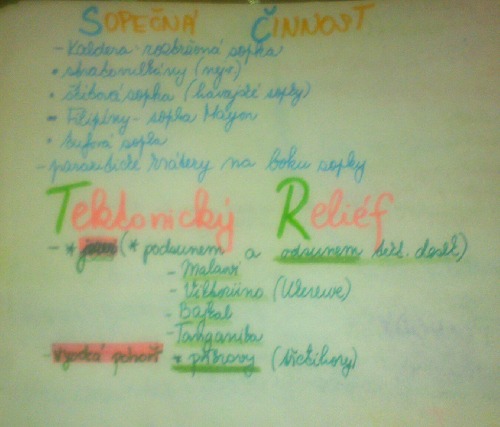 SOPEČNÁ ČINNOST
- Kaldera - rozbušná sopka
• stratovulkány (nejv)
• štítová sopka (havajské sopky)
- Filipíny - sopka Mayon
• tufová sopka
- parazitické krátery na boku sopky
Tektonický Reliéf
- * (* podsunem a odsunem lits. desek)
- Malawi
- Viktoriino (Ukerewe)
- Bajkal
- Tanganika
- vysoká pohoří * příkrovy (velehory)